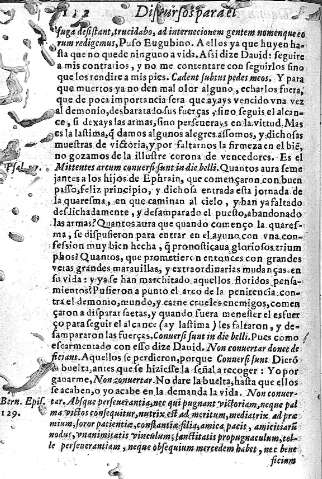 112 Discursos para el
fuga desistant, trucidabo, ad internecionem gentem nomenque eo
rum redigemus, Puso Eugubino. A ellos ya que huyen ha
sta que no quede ninguno a vida. Assi dize David: seguire
a mis contrarios, y no me contentare con seguirlos sino
que los rendire a mis pies. Cadent subtus pedes meos. Y para
que muertos ya no den mal olor alguno, echarlos fuera,
que de poca importancia sera que ayays vencido vna vez
al demonio, desbaratado sus fuerças, si no seguis el alcan-
ce, si dexays las armas, sino perseverays en la virtud. Mas
es la lastima, q̃ damos algunos alegres assomos, y dichosas
muestras de victoria, y por faltarnos la firmeza en el biẽ,
no gozamos de la illustre corona de vencedores. Es el
Psal. 77. Mittentes arcum conversi sunt in die belli. Quantos aura seme
jantes a los hijos de Ephrain, que començaron con buen
passo, feliz principio, y dichosa entrada esta jornada de
la quaresma, en que caminan al cielo, y han ya faltado
desdichadamente, y desamparado el puesto, abandonado
las armas? Quantos aura que quando començo la quares-
ma, se dispusieron para entrar en el ayuno, con vna con-
fession muy bien hecha, q̃ pronosticaua gloriosos trium
phos? Quantos, que prometieron entonces con grandes
veras grandes marauillas, y extraordinarias mudanças en
su vida? y ya se han marchitado aquellos floridos pensa-
mientos? Pusieron a punto el arco de la penitencia, con-
tra el demonio, mundo, y carne crueles enemigos, comen
çaron a disparar saetas, y quando fuera menester el esfuer
ço para seguir el alcance (ay lastima) les faltaron, y de-
sampararon las fuerças. Conversi sunt in die belli. Pues como
escarmentado con esso dize David. Non convertar donec de
ficiant. Aquellos se perdieron, porque Conversi sunt. Dierõ
la buelta, antes que se hiziesse la señal a recoger: Yo por
ganarme, Non convertar. No dare la buelta, hasta que ellos
se acaben, o yo acabe en la demanda la vida. Non conver-
Bern. Epis. tar. Absque perseverantia, nec qui pugnant victoriam, neque pal
129. ma victos consequitur, nutrix est ad meritum, mediatrix ad præ
mium, soror patientiæ, constantiæ filia, amica pacis, amicitiarũ
nodus, vnanimitatis vinculum, sanctitatis propugnaculum, tol-
le perseverantiam, neque obsequium mercedem habet, nec bene
ficium